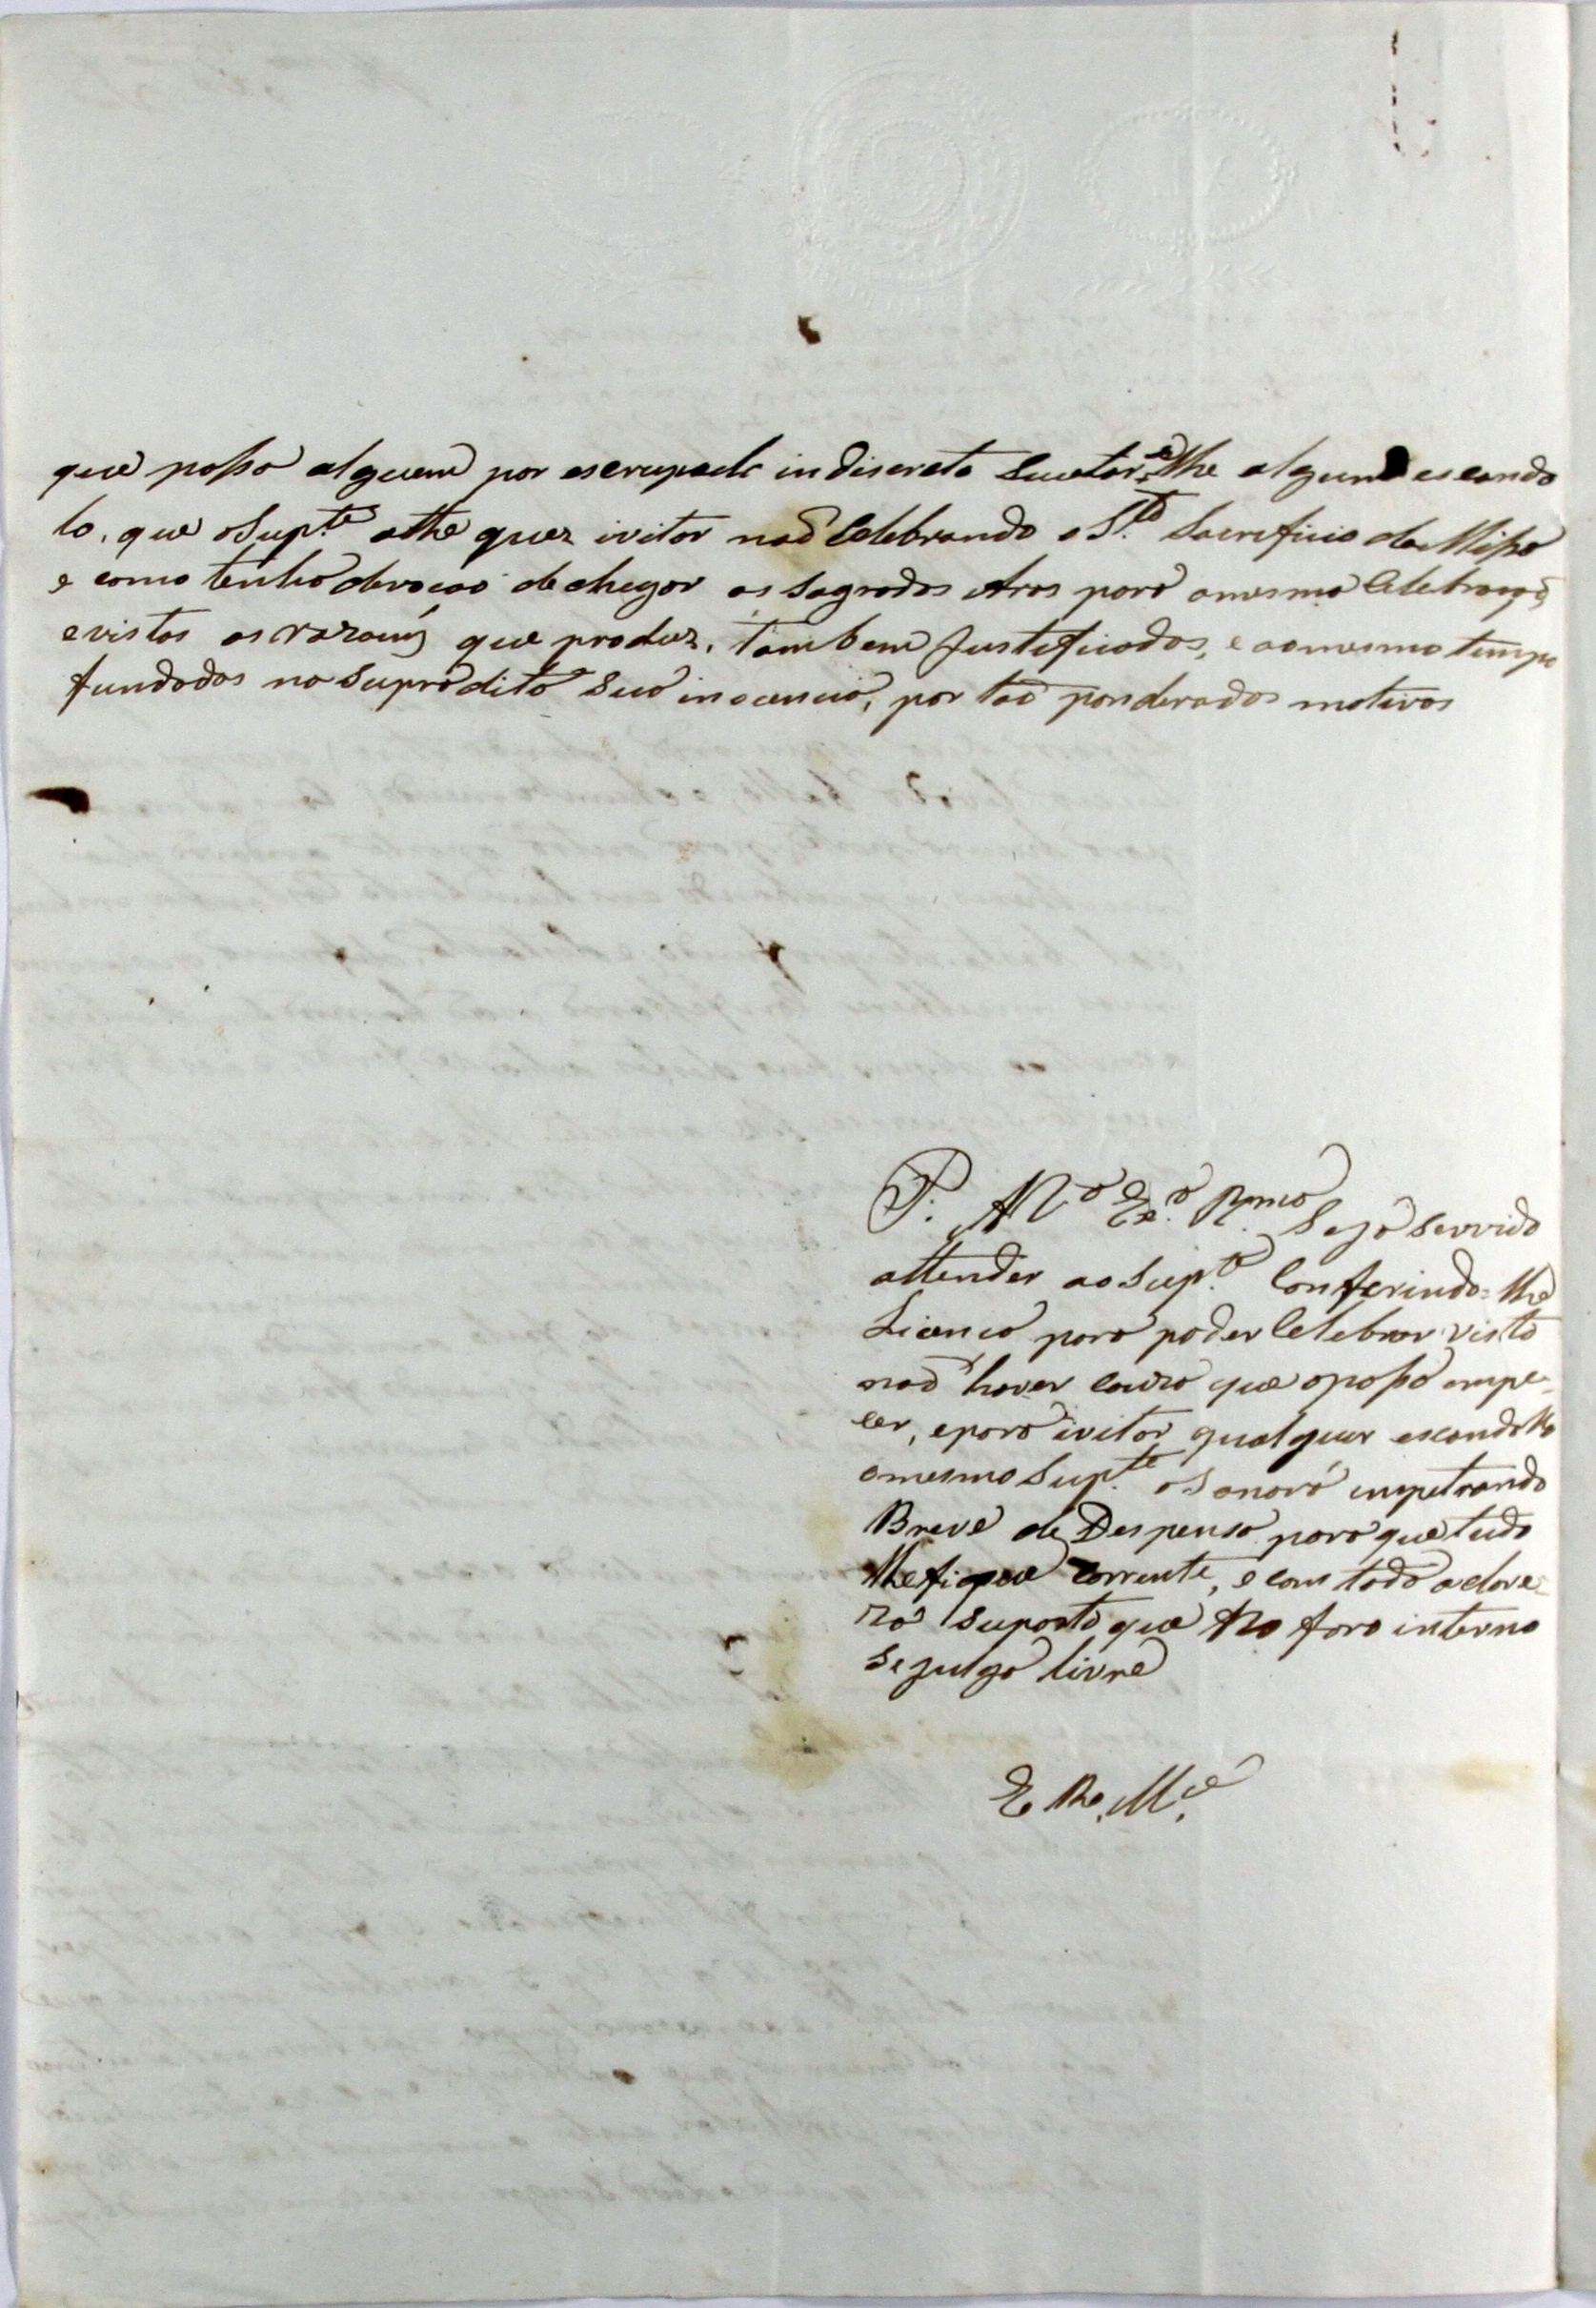 que posso alguem por escrupulo indiscreto sucitar-se-lhe algum escanda
lo, que o Sup.te athe quer ivitar naõ Celebrando o S.to Sacreficio da Missa
e como tenha devoçaõ de chegar as Sagradas Aras para a mesma Celebraçaõ,
e vistas as razoins que produz, tambem Justeficadas, e ao mesmo tempo
fundadas na supradita sua inocencia, por taõ ponderados motivos
P. A V.a Ex.a R.ma Seja servido
attender ao Sup.te Conferindo-lhe
Licença para poder Celebrar visto
naõ haver couza que o possa empe-
cer, e para ivitar qualquer escandallo
o mesmo Sup.te o Sanará impetrando
Breve de Despensa para que tudo
lhe fique corrente, e com todo a clare-
za suposto que no foro interno
se julga livre
E R. M.ce